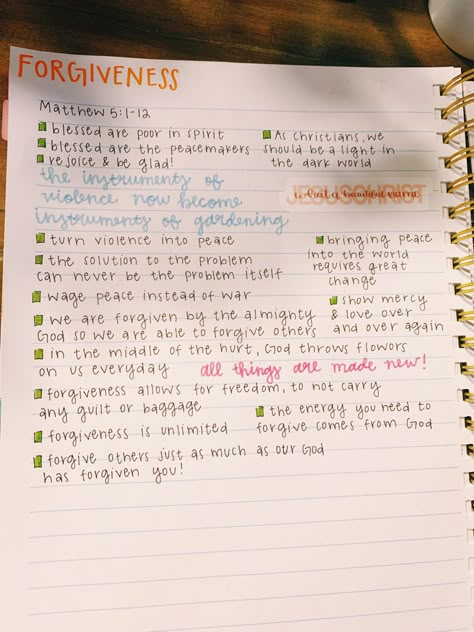 FORGIVENESS
Matthew 5:1-12
blessed are poor in spirit
blessed are the peacemakers
rejoice & be glad!
As Christians, we
should be a light in
the dark world
the instruments of
violence now become
instruments of gardening
JESUS CHRIST
what a beautiful name
turn violence into peace
the solution to the problem
can never be the problem itself
bringing peace
into the world
requires great
change
wage peace instead of war
show mercy
& love over
and over again
we are forgiven by the almighty
God so we are able to forgive others
in the middle of the hurt, God throws flowers
on us everyday
all things are made new!
forgiveness allows for freedom, to not carry
any guilt or baggage
the energy you need to
forgive comes from God
forgiveness is unlimited
forgive others just as much as our God
has forgiven you!